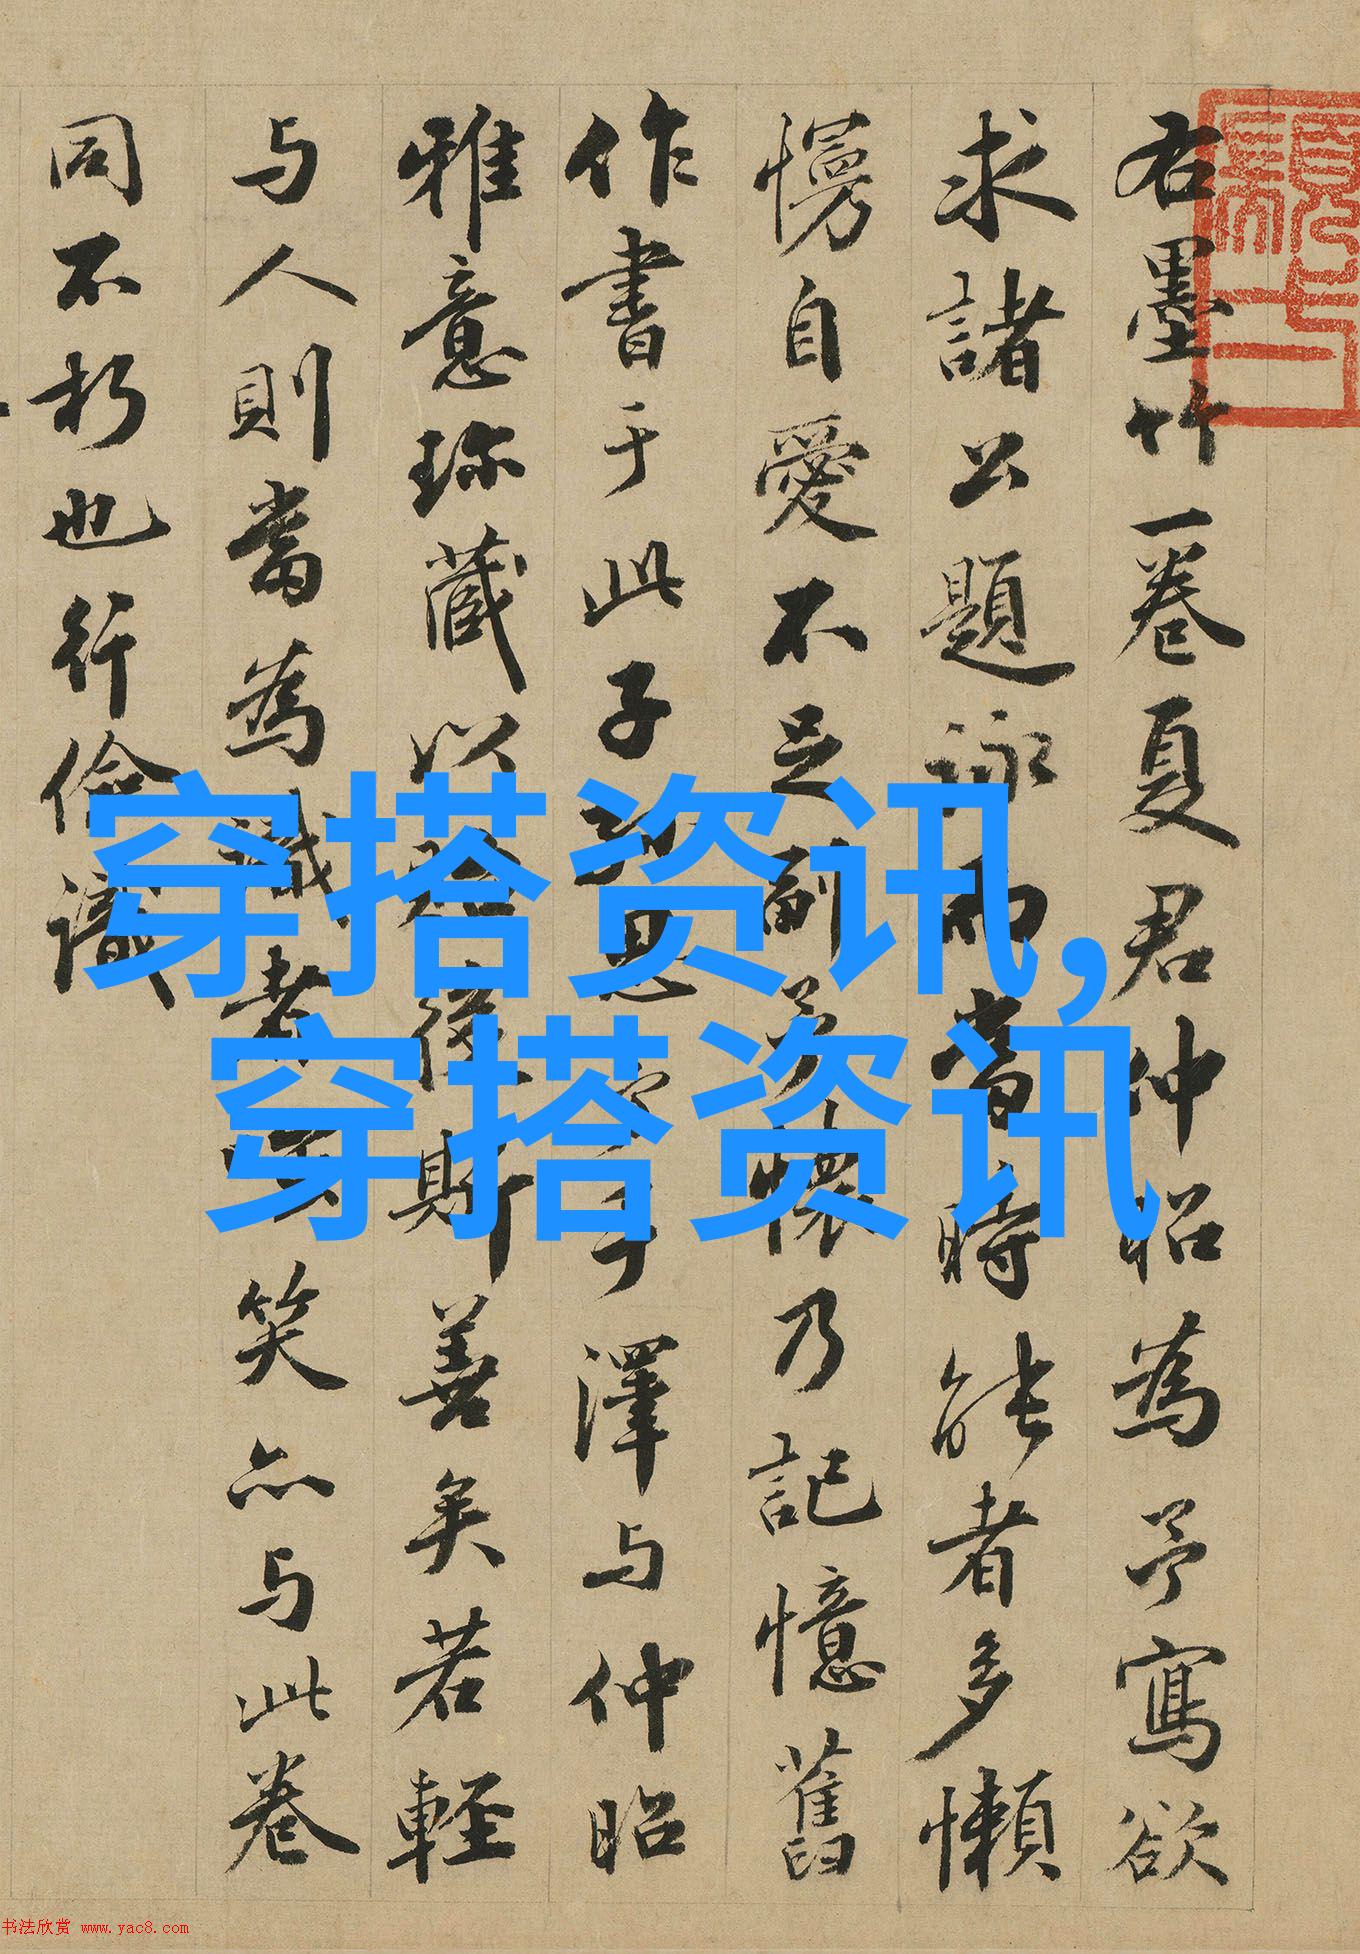 右墨竹一卷夏君仲昭為予寫欲
求諸公題詠而當時能者多懶
慢自愛不足副予懷乃記憶舊
作書于此子孫思予手澤与仲昭
雅意珎藏以貽後斯善矣若輕
与人則當為識者笑亦与此卷
同不朽也行儉識
穿搭资讯,
穿搭资讯
书法欣赏 www.yac8.com